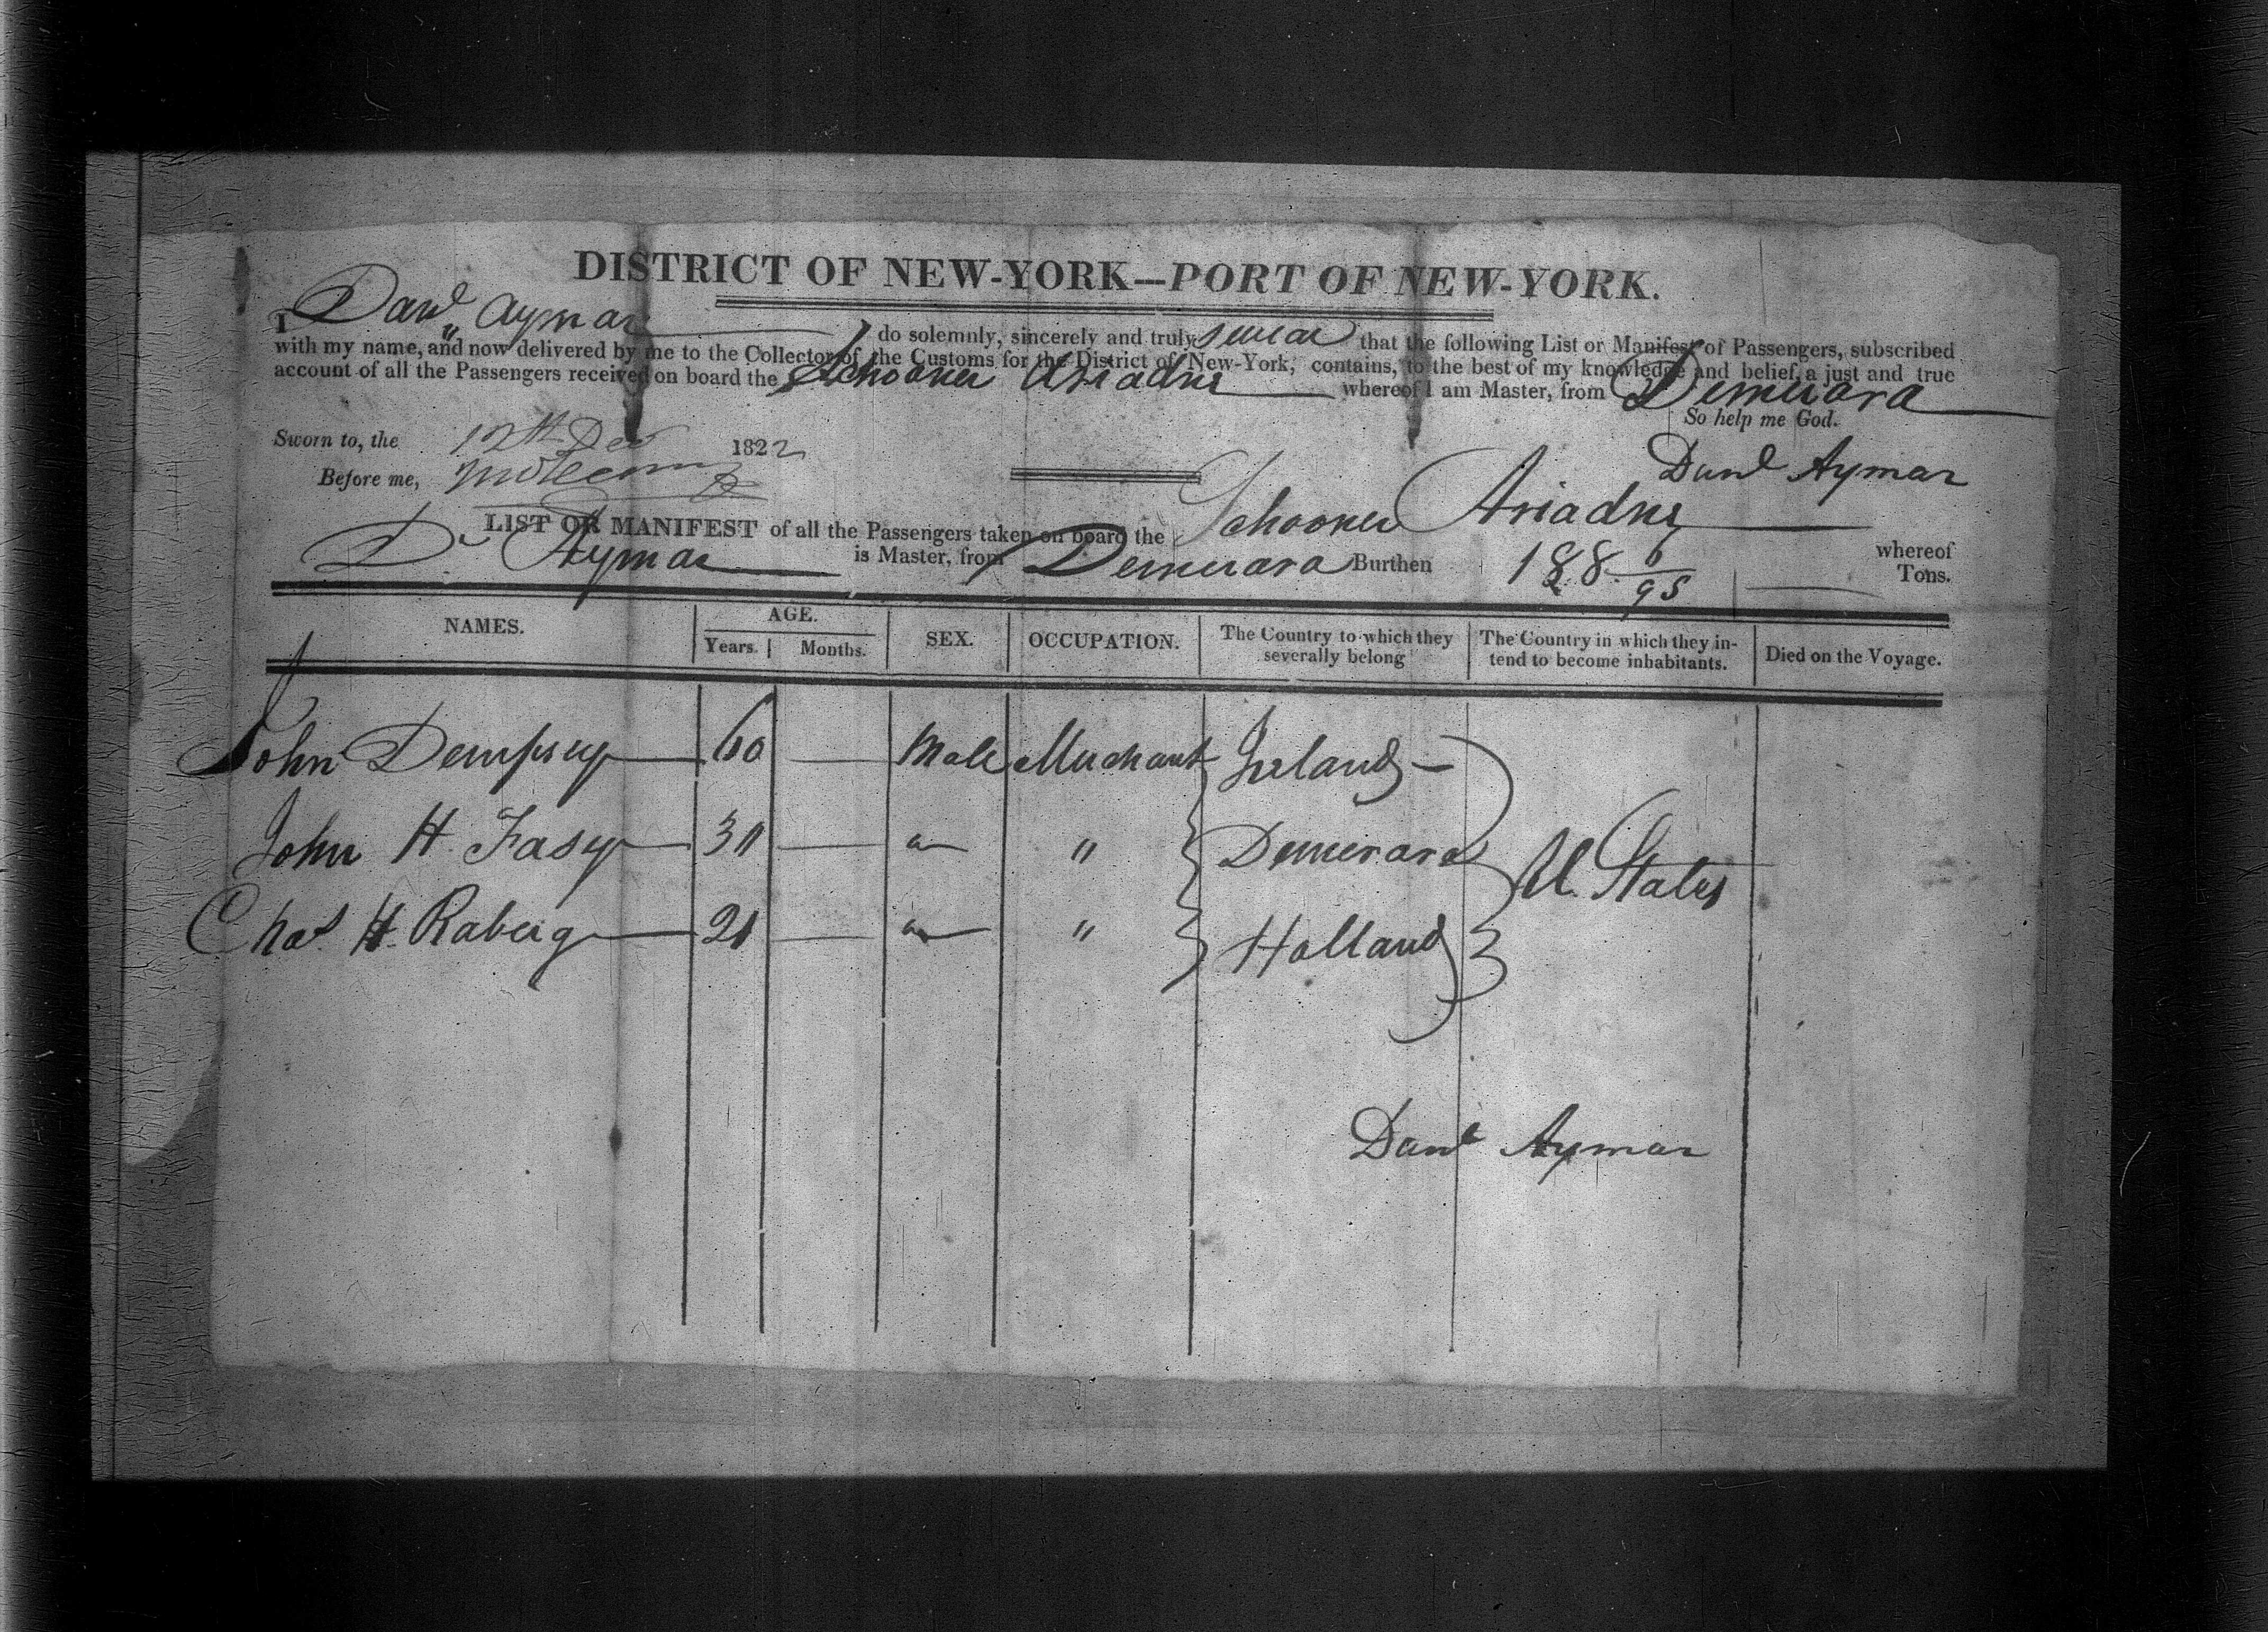 DISTRICT OF NEW-YORK—PORT OF NEW-YORK.
I Danl Aymar do solemnly, sincerely and truly swear that the following List or Manifest of Passengers, subscribed
with my name, and now delivered by me to the Collector of the Customs for the District of New-York, contains, to the best of my knowledge and belief, a just and true
account of all the Passengers received on board the Schooner Ariadne whereof I am Master, from Demerara
So help me God.
Sworn to, the 12th Dec 1822
Danl Aymar
Before me,
LIST OR MANIFEST of all the Passengers taken on board the Schooner Ariadne whereof
D. Aymar is Master, from Demerara Burthen 188 6/95 Tons.
NAMES. AGE. SEX. OCCUPATION. The Country to which they severally belong The Country in which they intend to become inhabitants. Died on the Voyage.
Years. Months.
John Dempsey 60 Male Merchant Ireland
John H. Fasy 30 " " Demerara U. States
Chas H. Raberg 21 " " Holland
Danl Aymar